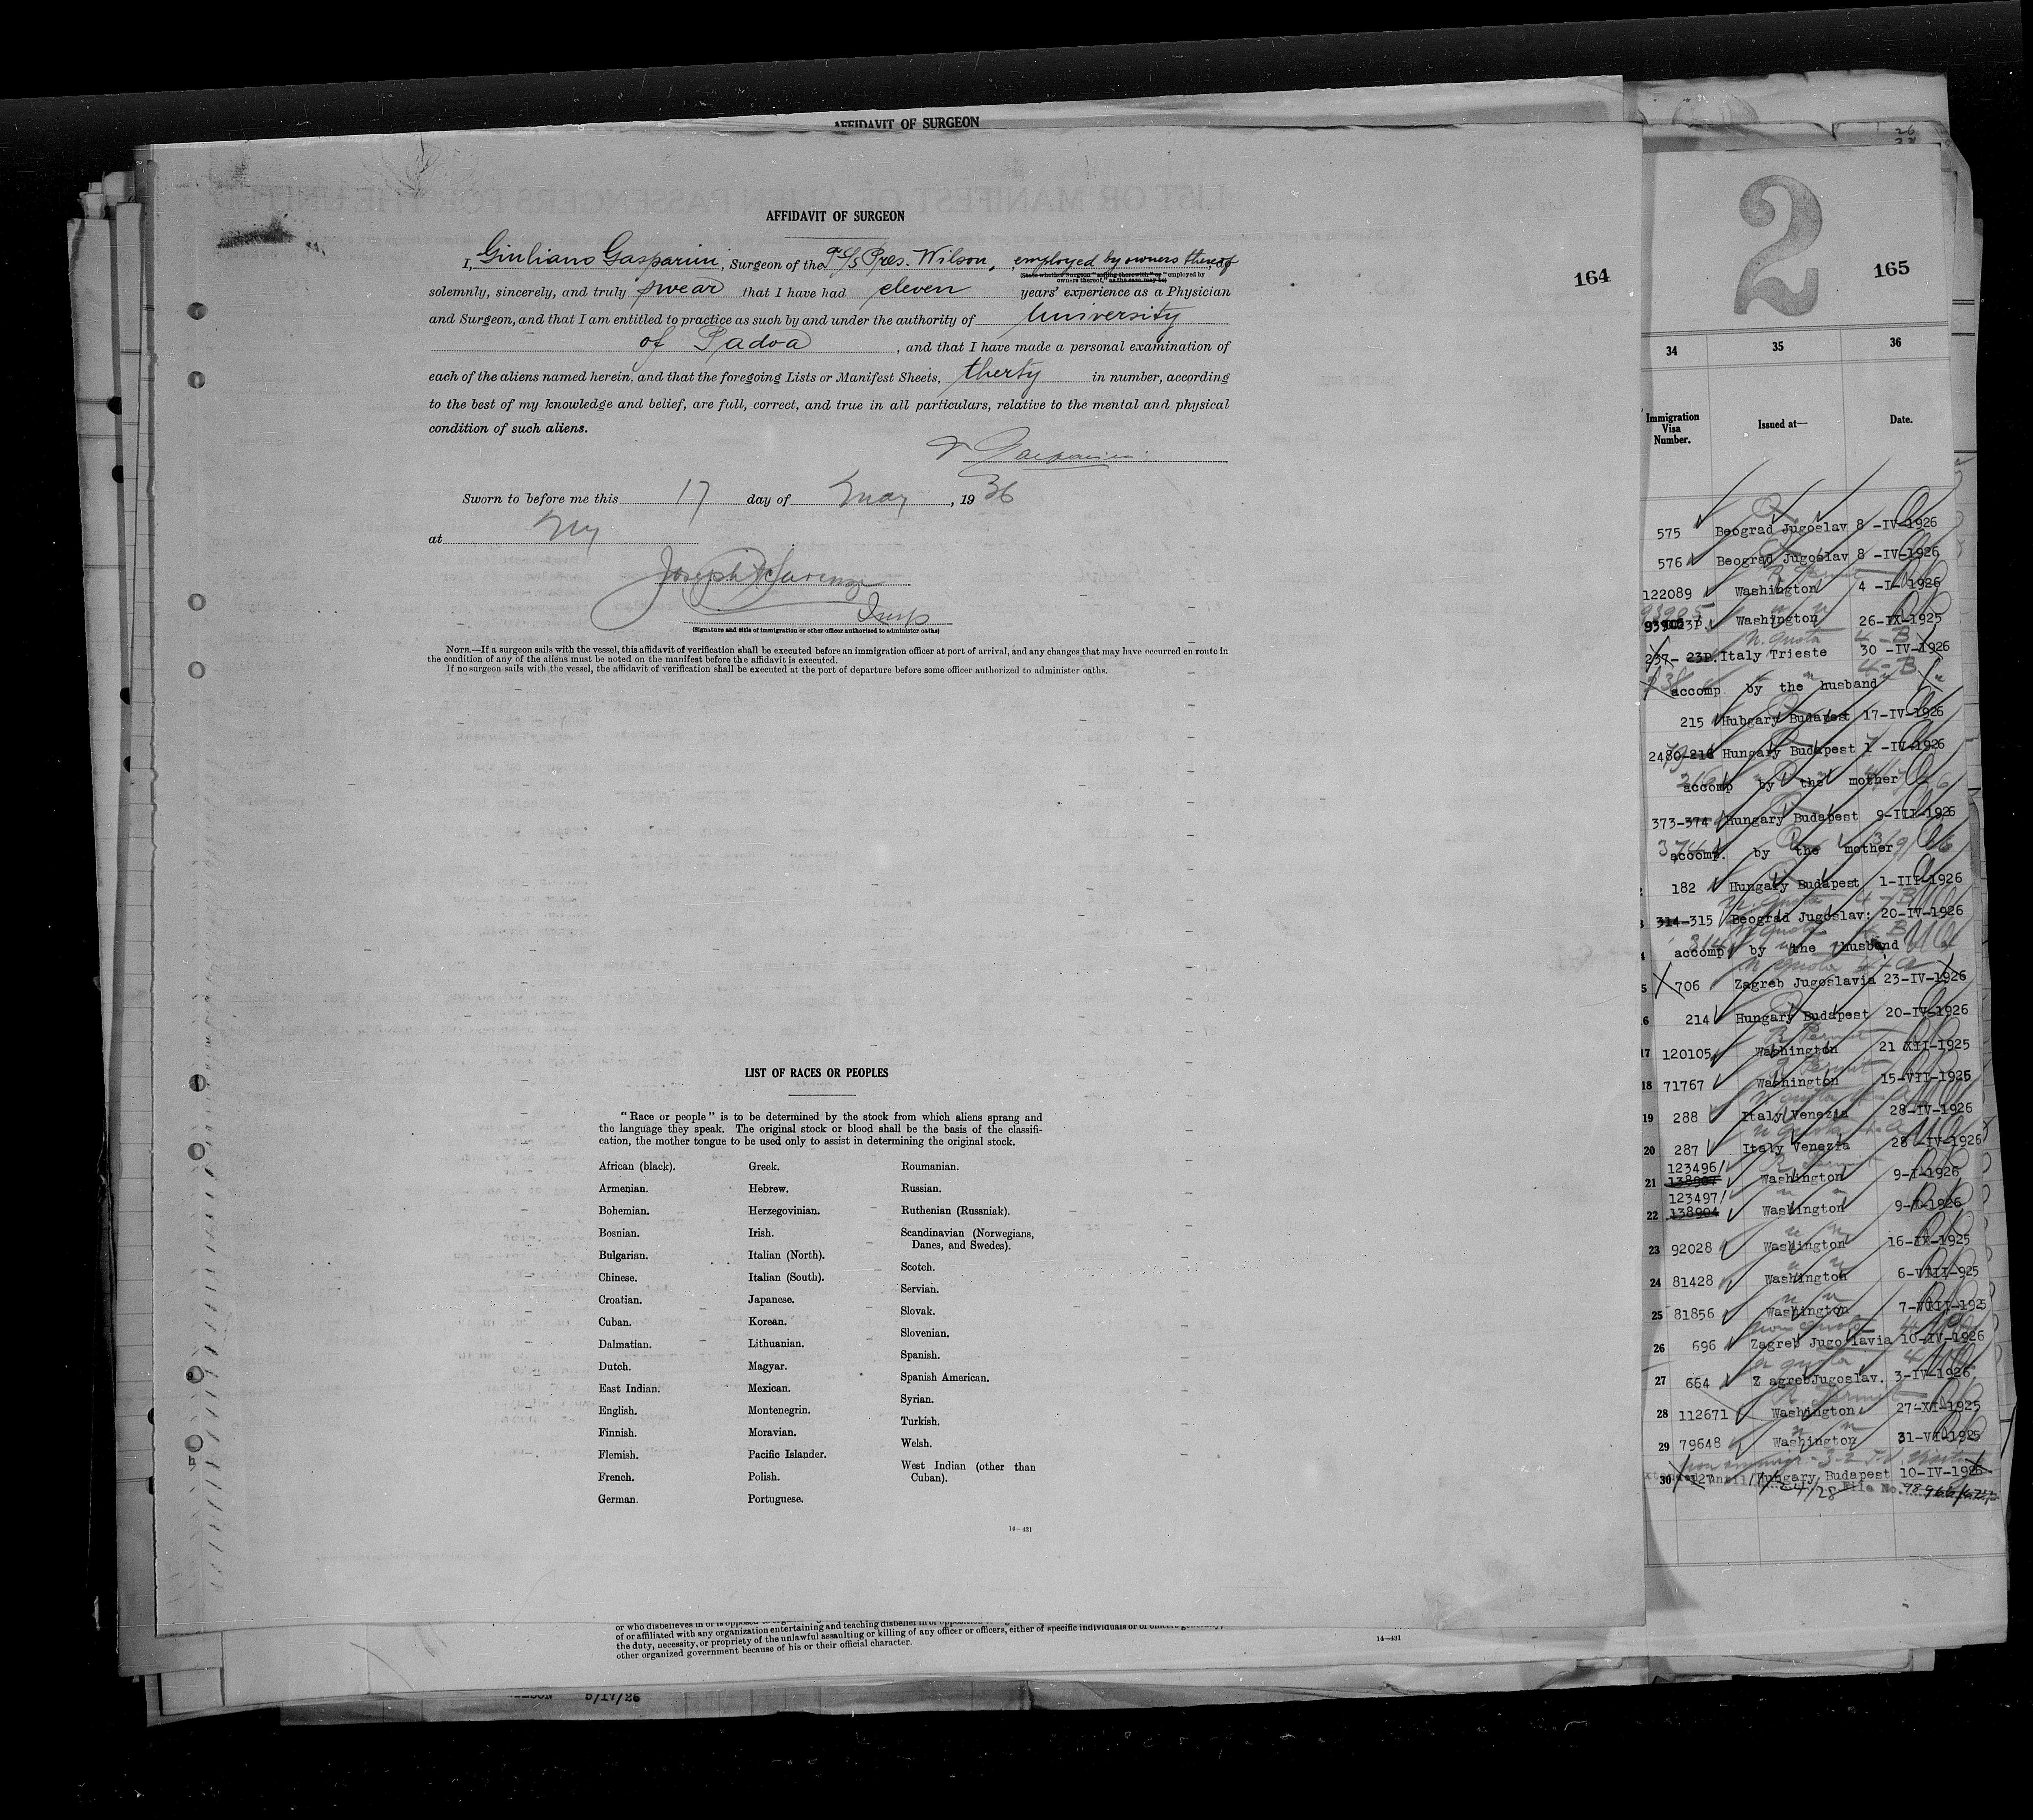 AFFIDAVIT OF SURGEON
AFFIDAVIT OF SURGEON
I, Giuliano Gasparini, Surgeon of the S/S Pres. Wilson, employed by owners thereof,
(State whether Surgeon "sailing therewith" or "employed by
owners thereof," as the case may be)
solemnly, sincerely, and truly swear that I have had eleven years' experience as a Physician
and Surgeon, and that I am entitled to practice as such by and under the authority of University
of Padoa, and that I have made a personal examination of
each of the aliens named herein, and that the foregoing Lists or Manifest Sheets, therty in number, according
to the best of my knowledge and belief, are full, correct, and true in all particulars, relative to the mental and physical
condition of such aliens.
Gasparini
Sworn to before me this 17 day of May, 1926
at NY
Joseph
Insp
(Signature and title of immigration or other officer authorized to administer oaths)
NOTE.—If a surgeon sails with the vessel, this affidavit of verification shall be executed before an immigration officer at port of arrival, and any changes that may have occurred en route in
the condition of any of the aliens must be noted on the manifest before the affidavit is executed.
If no surgeon sails with the vessel, the affidavit of verification shall be executed at the port of departure before some officer authorized to administer oaths.
164
LIST OF RACES OR PEOPLES
"Race or people" is to be determined by the stock from which aliens sprang and
the language they speak. The original stock or blood shall be the basis of the classifi-
cation, the mother tongue to be used only to assist in determining the original stock.
African (black).
Armenian.
Bohemian.
Bosnian.
Bulgarian.
Chinese.
Croatian.
Cuban.
Dalmatian.
Dutch.
East Indian.
English.
Finnish.
Flemish.
French.
German.
Greek.
Hebrew.
Herzegovinian.
Irish.
Italian (North).
Italian (South).
Japanese.
Korean.
Lithuanian.
Magyar.
Mexican.
Montenegrin.
Moravian.
Pacific Islander.
Polish.
Portuguese.
Roumanian.
Russian.
Ruthenian (Russniak).
Scandinavian (Norwegians,
Danes, and Swedes).
Scotch.
Servian.
Slovak.
Slovenian.
Spanish.
Spanish American.
Syrian.
Turkish.
Welsh.
West Indian (other than
Cuban).
14—431
of or affiliated with any organization entertaining and teaching disbelief in or opposition
the duty, necessity, or propriety of the unlawful assaulting or killing of any officer or officers, either of specific individuals or of officers
other organized government because of his or their official character.
14—431
5/17/26
2
165
34 35 36
Immigration Visa Number. Issued at— Date.
575 Beograd Jugoslav 8 -IV-1926
576 Beograd Jugoslav 8 -IV-1926
R Permit
122089 Washington 4 -I-1926
93905
Washington 26-IX-1925
N. Quota 4-B
237- 23P. Italy Trieste 30 -IV-1926
4-B
accomp by the husband
215 Hubgary Budapest 17-IV-1926
2480-216 Hungary Budapest 1 -IV-1926
accomp by the mother
373-374 Hungary Budapest 9-III-1926
374
accomp. by the mother
182 Hungary Budapest 1-III-1926
N. Quota 4-B
314-315 Beograd Jugoslav: 20-IV-1926
N Quota 4-B
314
accomp by the husband
N Quota 4-a
706 Zagreb Jugoslavia 23-IV-1926
16 214 Hungary Budapest 20-IV-1926
R Permit
17 120105 Washington 21 XII-1925
R Permit
18 71767 Washington 15-VII-1925
N Quota 4-a
19 288 Italy Venezia 28-IV-1926
N Quota 4-a
20 287 Italy Venezia 28 -IV-1926
123496/ R Permit
21 138907 Washington 9-I-1926
123497/
22 138904 Washington 9-I-1926
23 92028 Washington 16-IX-1925
24 81428 Washington 6-VIII-925
25 81856 Washington 7-VIII-1925
Non Quota
26 696 Zagreb Jugoslavia 10-IV-1926
N Quota
27 664 Z agrebJugoslav. 3-IV-1926
R Permit
28 112671 Washington 27-XI-1925
29 79648 Washington 31-VI-1925
non immigr. - 3-2
30 127 Hungary Budapest 10-IV-1926
File No.